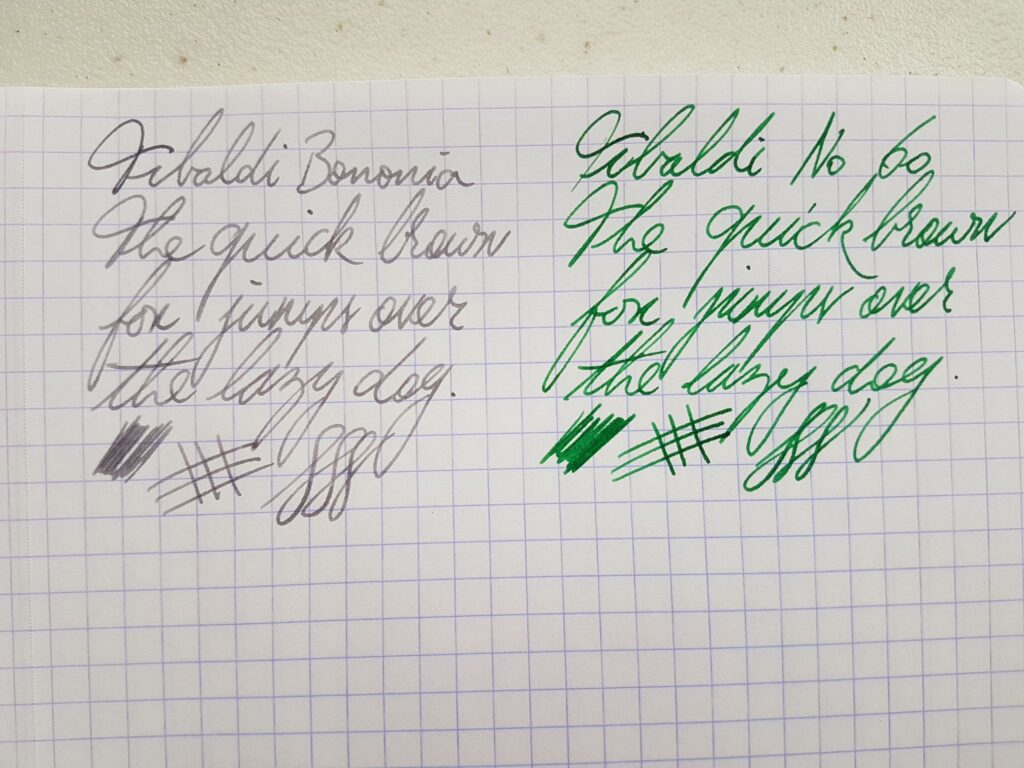 Tibaldi Bononia
The quick brown
fox jumps over
the lazy dog.
fff
Tibaldi No 60
The quick brown
fox jumps over
the lazy dog.
fff